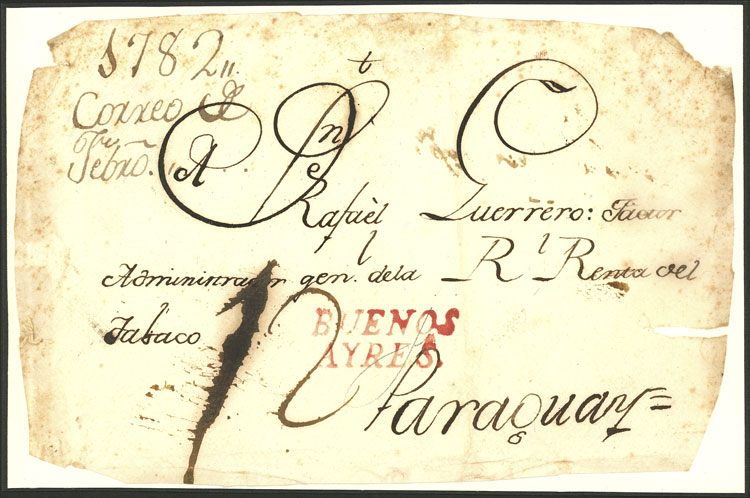 1782,,
Correo de
Febro.
A Dn
Rafaèl Guerrero: Factor
Administrador genl. dela Rl Renta del
Tabaco
12
BUENOS
AYRES.
Paraguay=